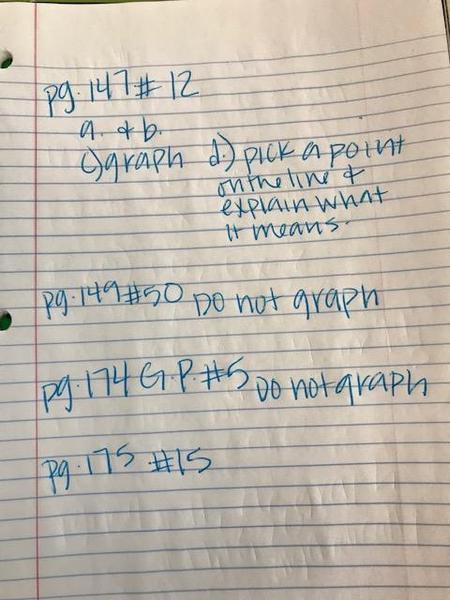 pg. 147 # 12
a. & b.
c) graph d.) pick a point
on the line &
explain what
it means.
pg. 149 #50 Do not graph
pg. 174 G.P. #5 Do not graph
pg. 175 #15